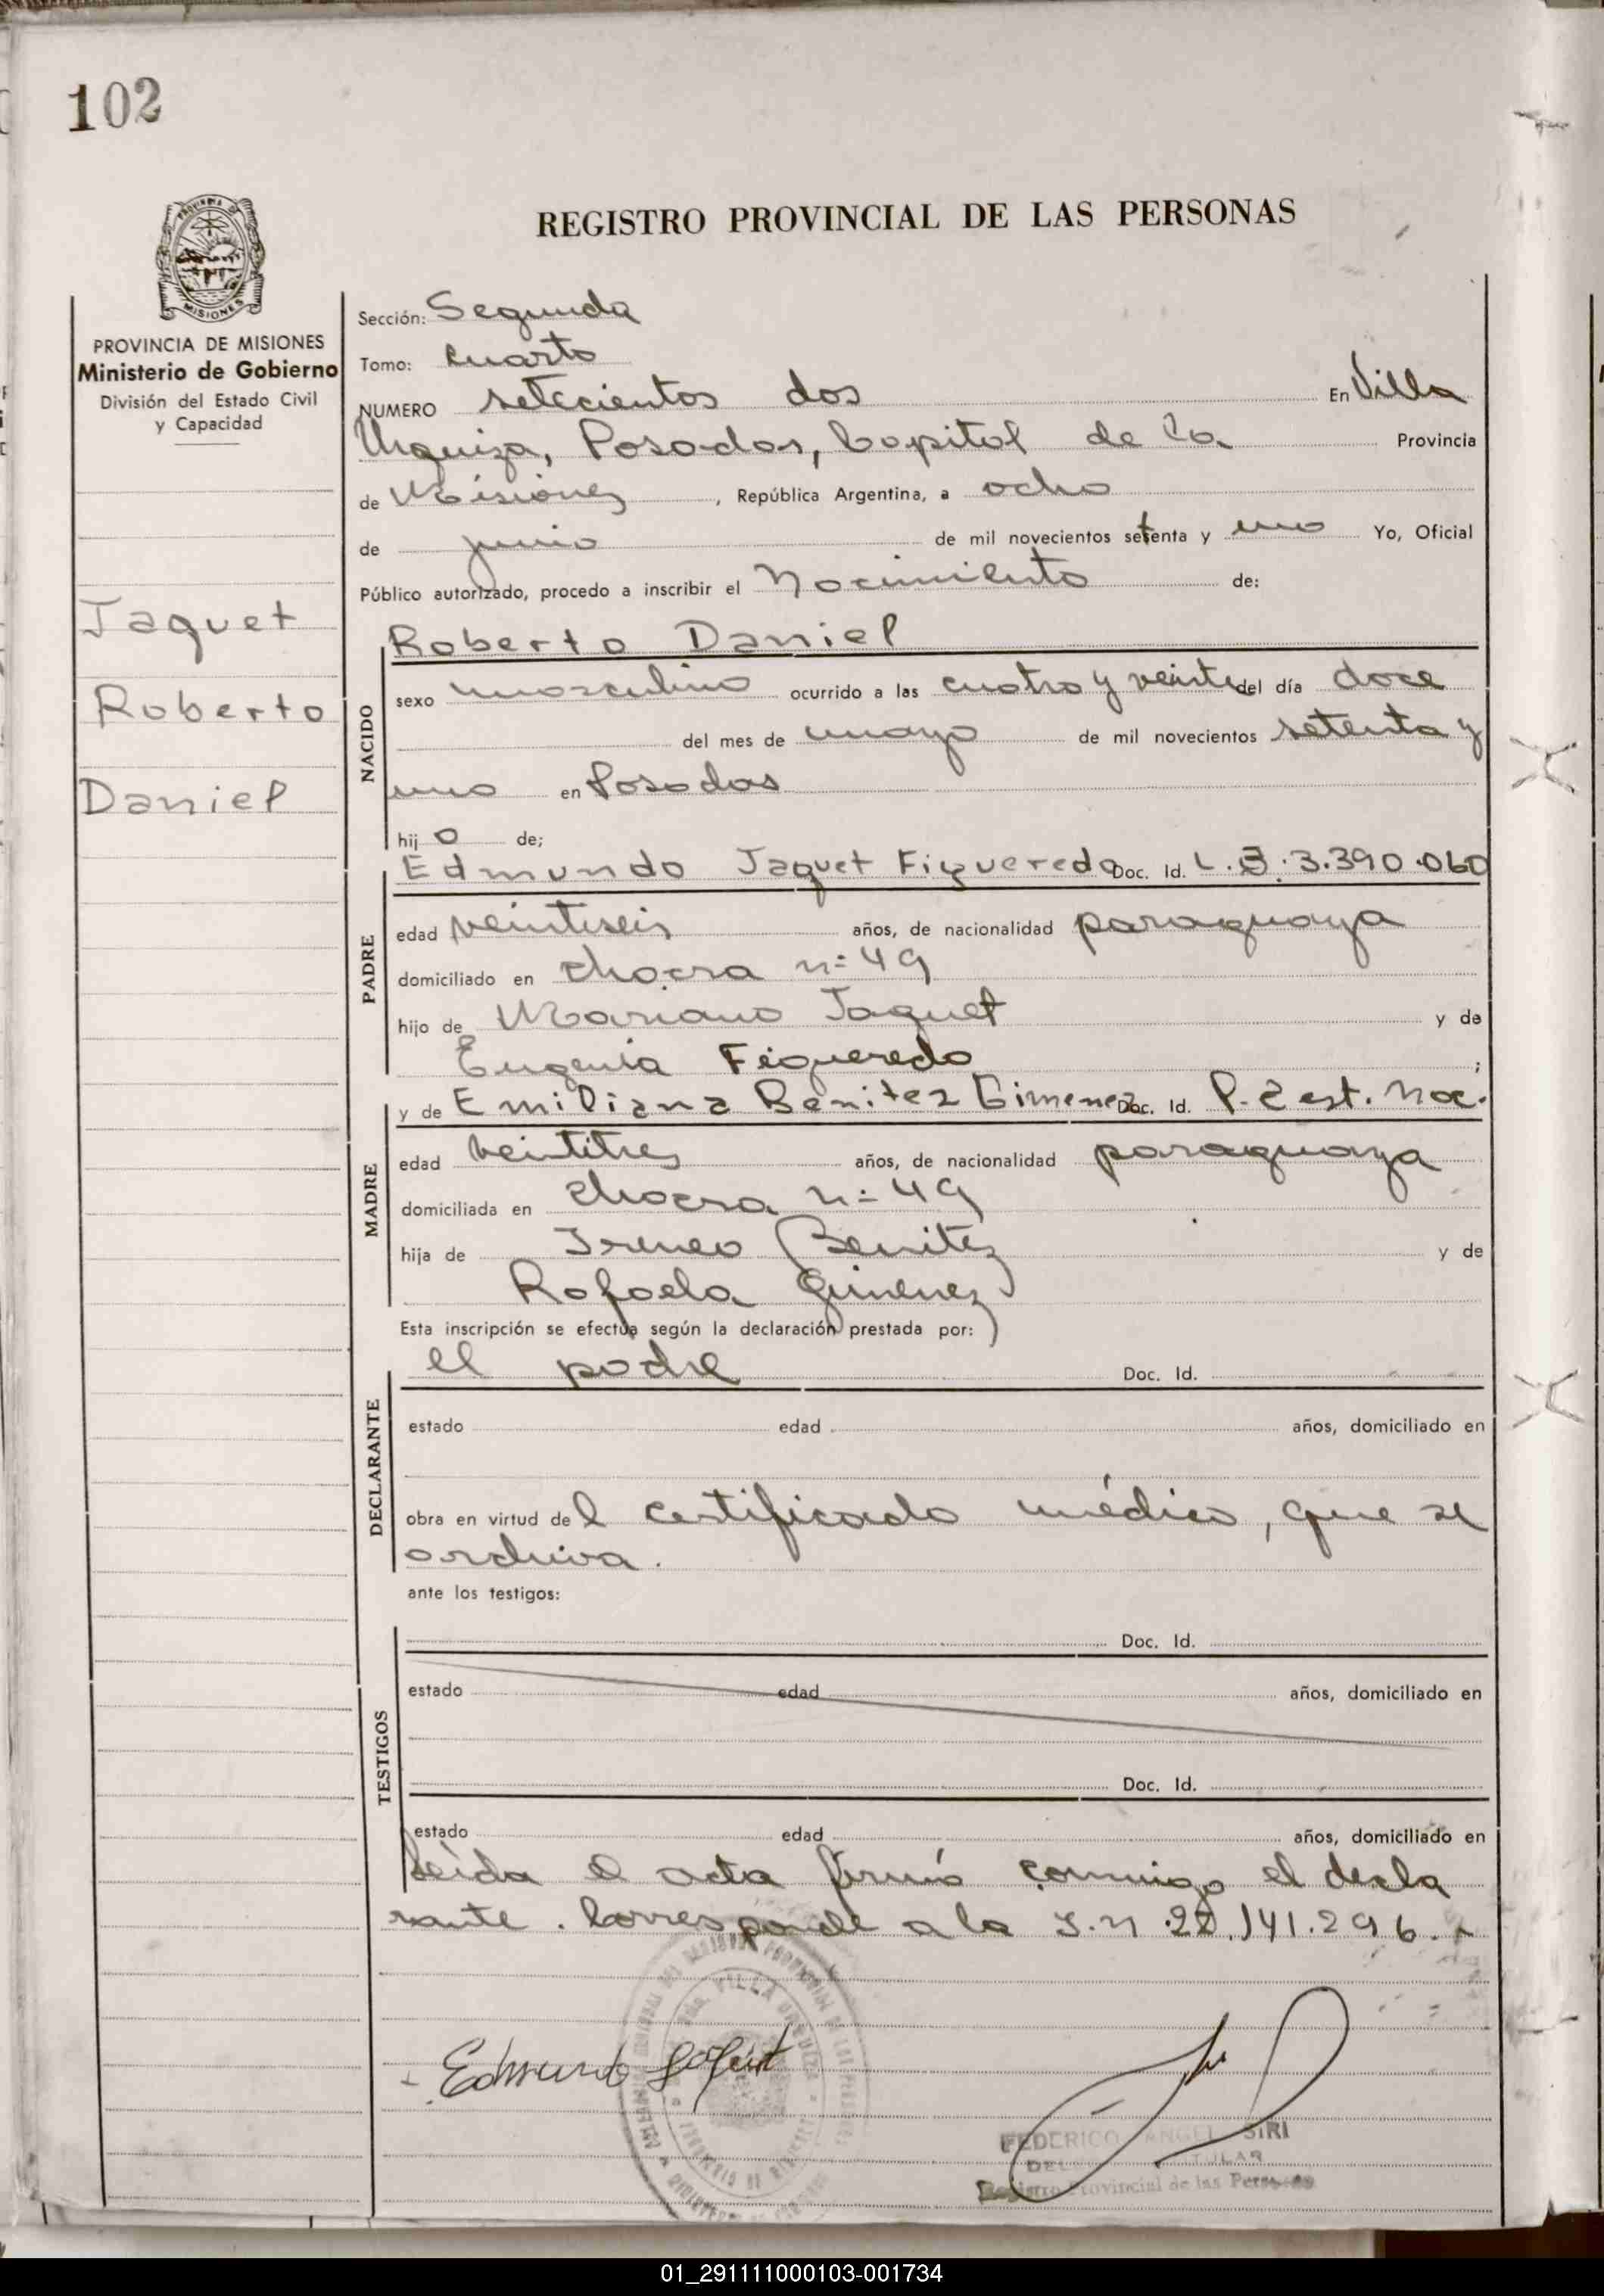 102
REGISTRO PROVINCIAL DE LAS PERSONAS
MISIONES
PROVINCIA DE MISIONES
Ministerio de Gobierno
División del Estado Civil
y Capacidad
Jaquet
Roberto
Daniel
Sección: Segunda
Tomo: Cuarto
NUMERO setecientos dos En Villa
Urquiza, Posadas, Capital de la Provincia
de Misiones, República Argentina, a ocho
de junio de mil novecientos setenta y uno Yo, Oficial
Público autorizado, procedo a inscribir el Nacimiento de:
Roberto Daniel
NACIDO
sexo masculino ocurrido a las cuatro y veinte del día doce
del mes de mayo de mil novecientos setenta y
uno en Posadas
hijo de;
PADRE
Edmundo Jaquet Figueredo Doc. Id. L.B.3.390.060
edad veintiseis años, de nacionalidad paraguaya
domiciliado en chacra n=49
hijo de Mariano Jaquet y de
Eugenia Figueredo ;
MADRE
y de Emiliana Benitez Gimenez Doc. Id. P. 2 est. Nac.
edad veintitres años, de nacionalidad paraguaya
domiciliada en chacra n=49
hija de Ireneo Benitez y de
Rafaela Gimenez
Esta inscripción se efectúa según la declaración prestada por:
DECLARANTE
el padre Doc. Id.
estado edad años, domiciliado en
obra en virtud del certificado médico, que se
archiva.
ante los testigos:
TESTIGOS
Doc. Id.
estado edad años, domiciliado en
Doc. Id.
estado edad años, domiciliado en
Leída el acta firmó conmigo el decla
rante. Corresponde a la I.n. 22.141.296.
Edmundo Jaquet
FEDERICO ANGEL SIRI
TITULAR
Registro Provincial de las Personas
01_291111000103-001734